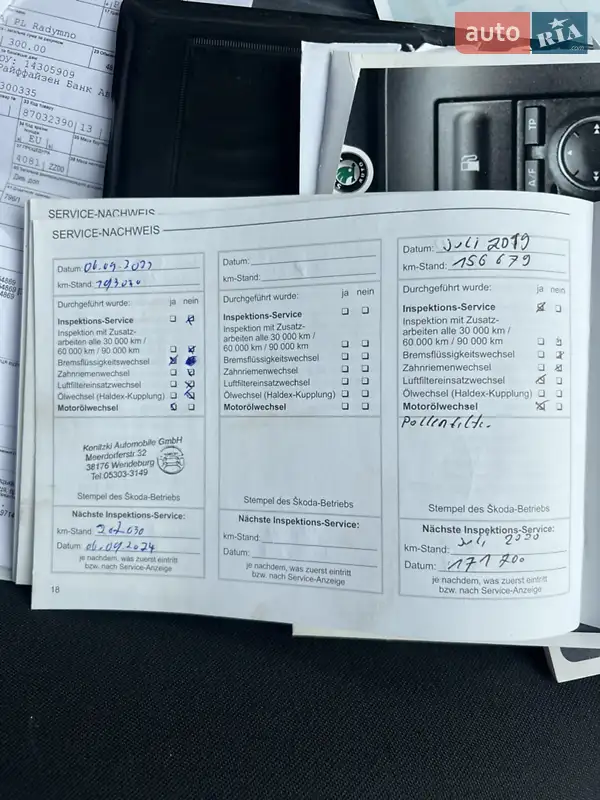 auto RIA.com
PL Radymno
300.00
ОУ: 14305909
Райффайзен Банк
300335
87032390 13
EU
4081 Z200
TP
A/F
SERVICE-NACHWEIS
SERVICE-NACHWEIS
Datum: 06.09.2022
km-Stand:
Durchgeführt wurde: ja nein
Inspektions-Service
Inspektion mit Zusatz-
arbeiten alle 30 000 km /
60 000 km / 90 000 km
Bremsflüssigkeitswechsel
Zahnriemenwechsel
Luftfiltereinsatzwechsel
Ölwechsel (Haldex-Kupplung)
Motorölwechsel
Konitzki Automobile GmbH
Meerdorferstr.32
38176 Wendeburg
Tel.05303-3149
Stempel des Škoda-Betriebs
Nächste Inspektions-Service:
km-Stand:
Datum: 06.09.2024
je nachdem, was zuerst eintritt
bzw. nach Service-Anzeige
18
Datum:
km-Stand:
Durchgeführt wurde: ja nein
Inspektions-Service
Inspektion mit Zusatz-
arbeiten alle 30 000 km /
60 000 km / 90 000 km
Bremsflüssigkeitswechsel
Zahnriemenwechsel
Luftfiltereinsatzwechsel
Ölwechsel (Haldex-Kupplung)
Motorölwechsel
Stempel des Škoda-Betriebs
Nächste Inspektions-Service:
km-Stand:
Datum:
je nachdem, was zuerst eintritt
bzw. nach Service-Anzeige
Datum: Juli 2019
km-Stand: 156 679
Durchgeführt wurde: ja nein
Inspektions-Service
Inspektion mit Zusatz-
arbeiten alle 30 000 km /
60 000 km / 90 000 km
Bremsflüssigkeitswechsel
Zahnriemenwechsel
Luftfiltereinsatzwechsel
Ölwechsel (Haldex-Kupplung)
Motorölwechsel
Stempel des Škoda-Betriebs
Nächste Inspektions-Service:
km-Stand: Juli 2020
Datum: 171 700
je nachdem, was zuerst eintritt
bzw. nach Service-Anzeige